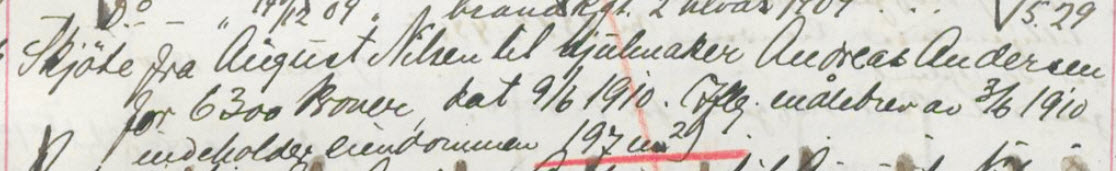 Do - " 14/12 09, brandtkgt. 2 1909 ... 5.29
Skjöte fra August Nilsen til hjulmaker Andreas Andersen
for 6300 kroner, dat 9/6 1910. (Iflg. målebrev av 3/6 1910
indeholder eiendommen 197 m²)